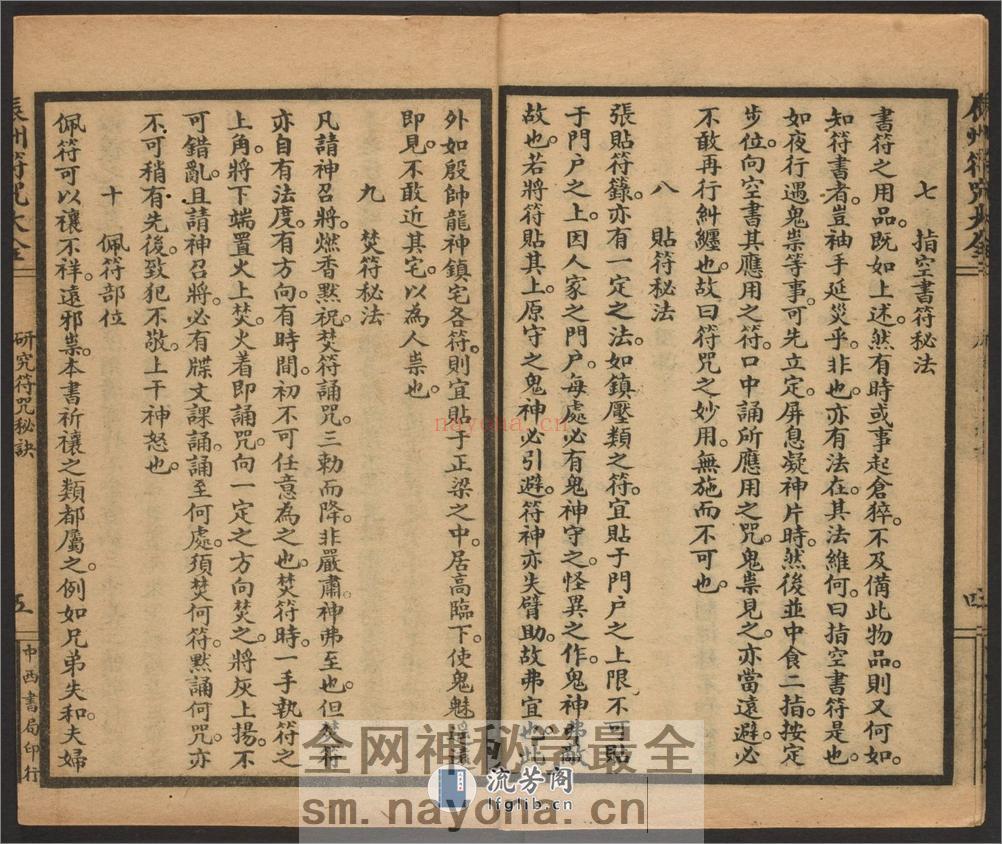 七　指空書符秘法
書符之用品。既如上述。然有時或事起倉猝。不及備此物品。則又何如。
知符書者。豈袖手延災乎。非也。亦有法在。其法維何。曰指空書符是也。
如夜行遇鬼祟等事。可先立定。屏息凝神片時。然後並中食二指。按定
步位。向空書其應用之符。口中誦所應用之咒。鬼祟見之。亦當遠避。必
不敢再行糾纏也。故曰符咒之妙用。無施而不可也。
八　貼符秘法
張貼符籙。亦有一定之法。如鎮壓類之符。宜貼于門戶之上限。不可貼
于門戶之上。因人家之門戶。每處必有鬼神守之。怪異之作。鬼神弗敵
故也。若將符貼其上。原守之鬼神必引避。符神亦失臂助。故弗宜也。此
外如殷帥龍神鎮宅各符。則宜貼于正梁之中。居高臨下。使鬼魅遠
即見。不敢近其宅。以為人祟也。
九　焚符秘法
凡請神召將。燃香默祝。焚符誦咒。三勅而降。非嚴肅神弗至也。但焚符
亦自有法度。有方向。有時間。初不可任意為之也。焚符時。一手執符之
上角。將下端置火上焚。火着即誦咒。向一定之方向焚之。將灰上揚。不
可錯亂。且請神召將。必有牒文課誦。誦至何處。須焚何符。默誦何咒。亦
不可稍有先後。致犯不敬。上干神怒也。
十　佩符部位
佩符可以禳不祥。遠邪祟。本書祈禳之類都屬之。例如兄弟失和。夫婦
辰州符咒大全
研究符咒秘訣
五
中西書局印行
nayona.cn
全网神秘学最全
sm.nayona.cn
流芳阁
lfglib.cn